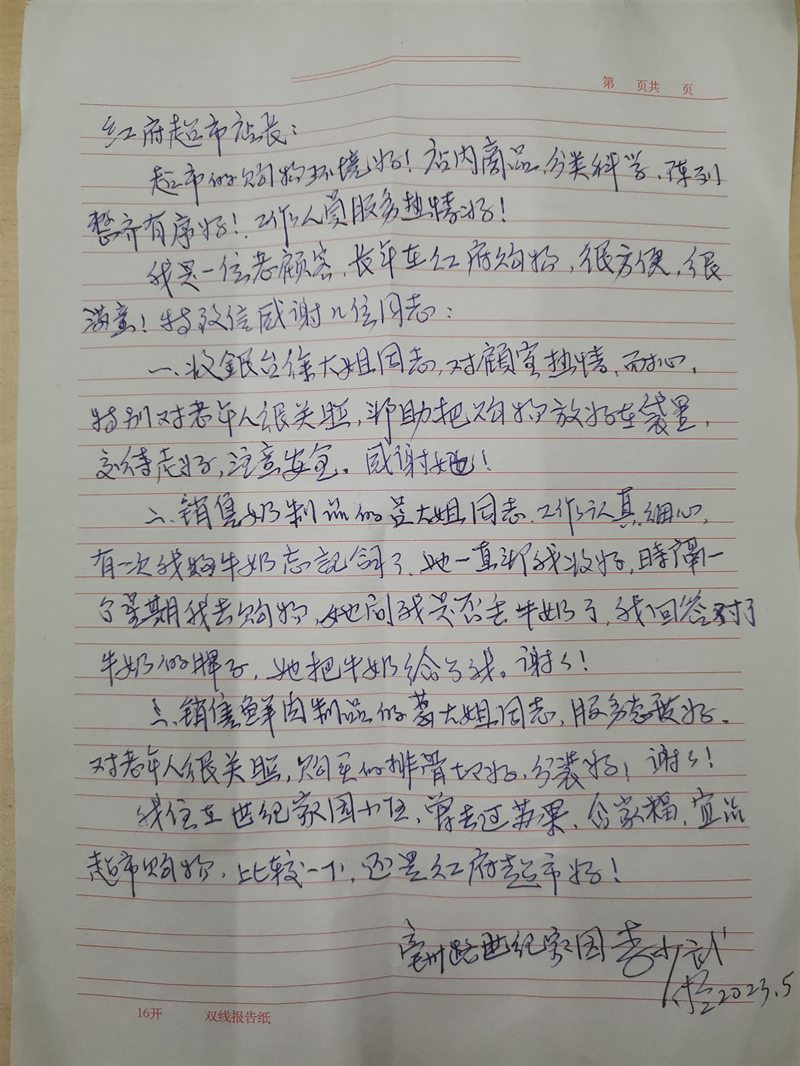 第 页共 页
红府超市店长：
超市的购物环境好！店内商品分类科学，陈列
整齐有序好！工作人员服务热情好！
我是一位老顾客，长年在红府购物，很方便，很
满意！特致信感谢几位同志：
一、收銀台徐大姐同志，对顾客热情、耐心，
特别对老年人很关照，帮助把购物放好在袋里，
交待走好，注意安全。感谢她！
二、销售奶制品的大姐同志，工作认真细心，
有一次我购牛奶忘記了，她一直帮我收好，時隔一
个星期我去购物，她问我是否丢牛奶了，我回答对了
牛奶的牌子，她把牛奶给了我。谢谢！
三、销售鲜肉制品的大姐同志，服务态度好，
对老年人很关照，购买的排骨切好，分装好！谢谢！
我住在世纪家园小区，曾去过苏果、合家福、宜品
超市购物，比较一下，还是红府超市好！
亳州路世纪家园李少武
2023.5
16开 双线报告纸